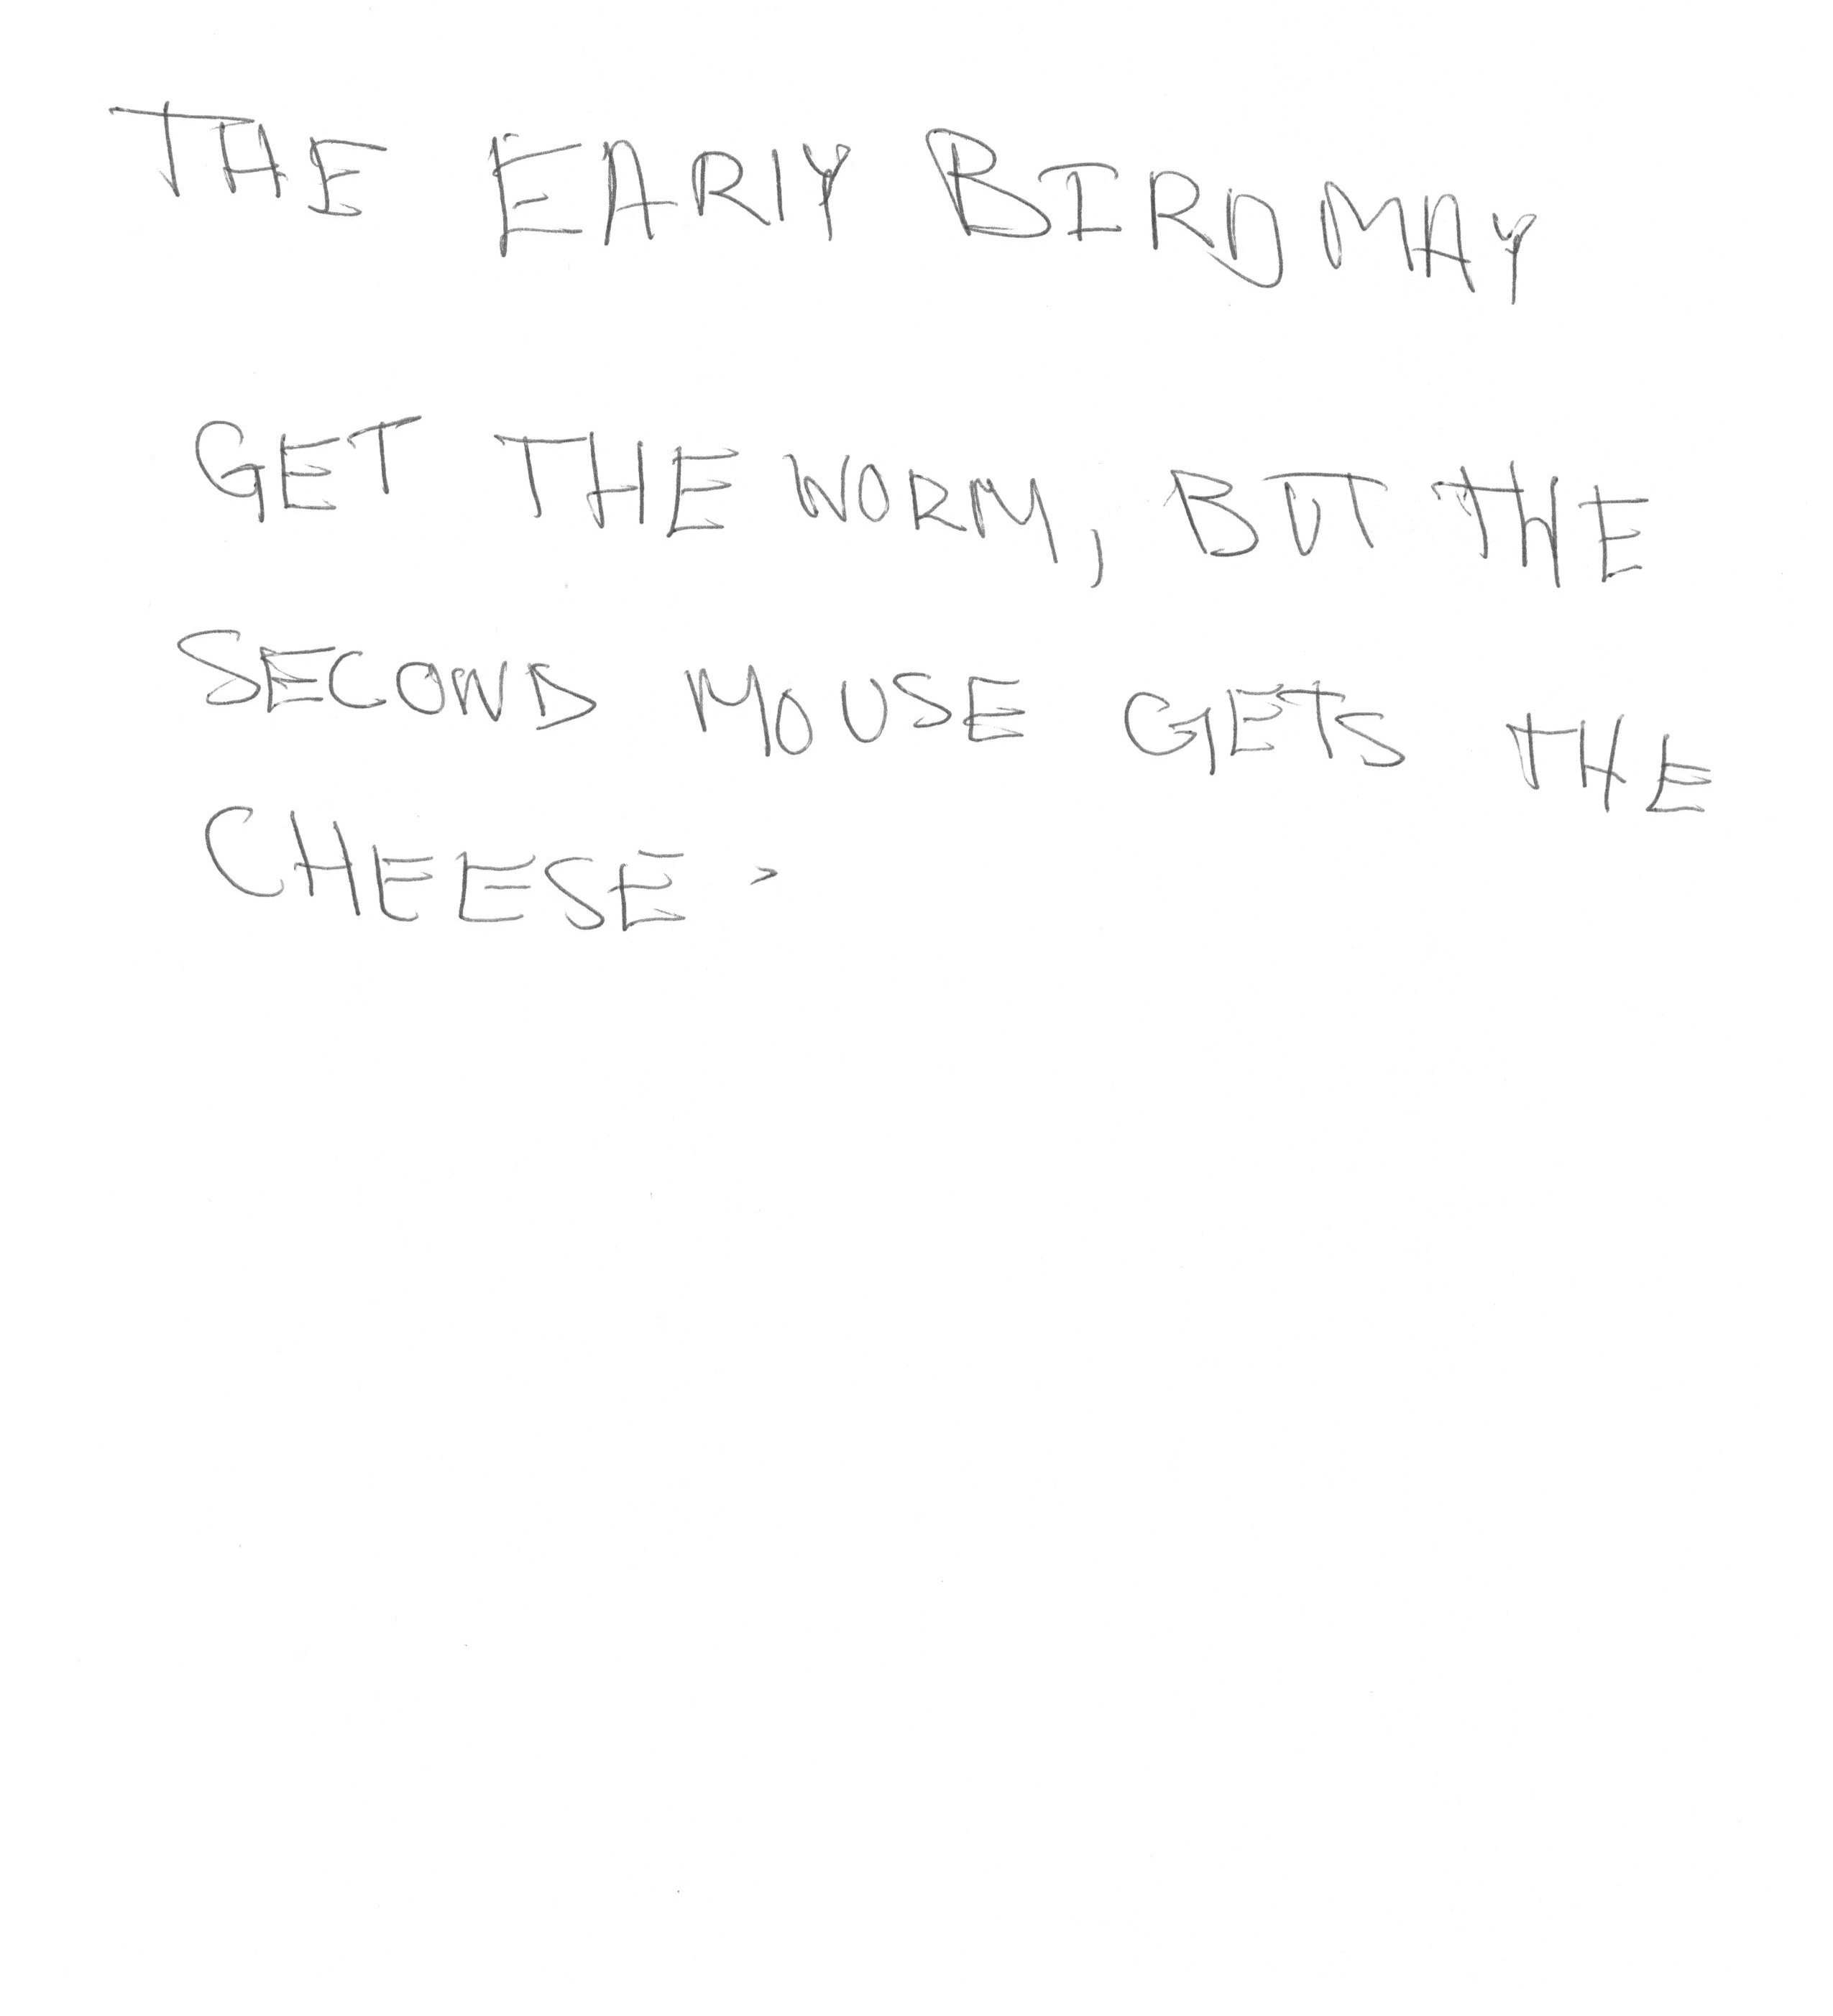 THE EARLY BIRD MAY
GET THE WORM, BUT THE
SECOND MOUSE GETS THE
CHEESE.